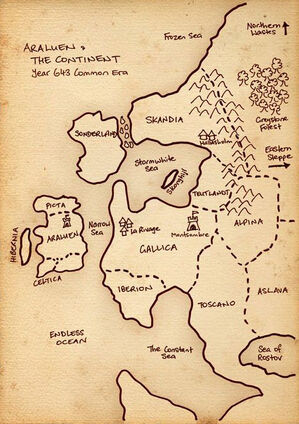 ARALUEN &
THE CONTINENT
Year 643 Common Era
Frozen Sea
Northern
Wastes
SKANDIA
Greystone
Forest
SONDERLAND
Hallasholm
Stormwhite
Sea
Eastern
Steppe
Skorghijl
TEUTLANDT
PICTA
ARALUEN
Narrow
Sea
La Rivage
Montsombre
ALPINA
HIBERNIA
GALLICA
CELTICA
IBERION
TOSCANO
ASLAVA
ENDLESS
OCEAN
The Constant
Sea
Sea of
Rostov